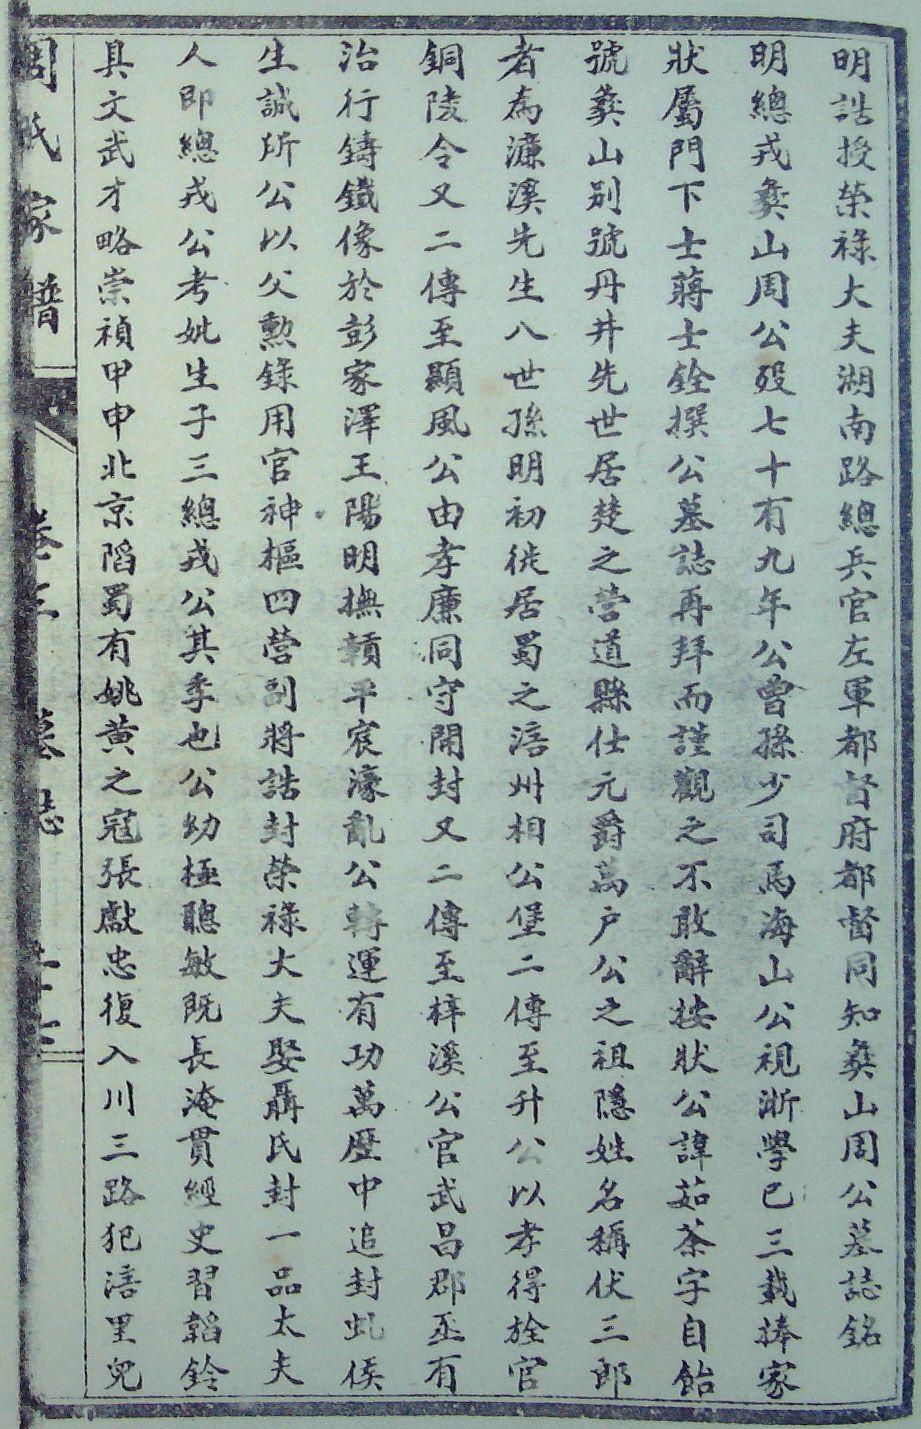 明誥授榮祿大夫湖南路總兵官左軍都督府都督同知彜山周公墓誌銘
明總戎彜山周公歿七十有九年公曾孫少司馬海山公視浙學已三載捧家
狀屬門下士蔣士銓撰公墓誌再拜而謹觀之不敢辭按狀公諱茹荼字自飴
號彜山別號丹井先世居楚之營道縣仕元爵萬戶公之祖隱姓名稱伏三郎
者為濂溪先生八世孫明初徙居蜀之涪州相公堡二傳至升公以孝得旌官
銅陵令又二傳至顯風公由孝廉同守開封又二傳至梓溪公官武昌郡丞有
治行鑄鐵像於彭家澤王陽明撫贛平宸濠亂公轉運有功萬歷中追封虬侯
生誠所公以父勲錄用官神樞四營副將誥封榮祿大夫娶聶氏封一品太夫
人即總戎公考妣生子三總戎公其季也公幼極聰敏既長淹貫經史習韜鈐
具文武才略崇禎甲申北京陷蜀有姚黃之寇張獻忠復入川三路犯涪里兒
周氏家譜
卷三
墓誌